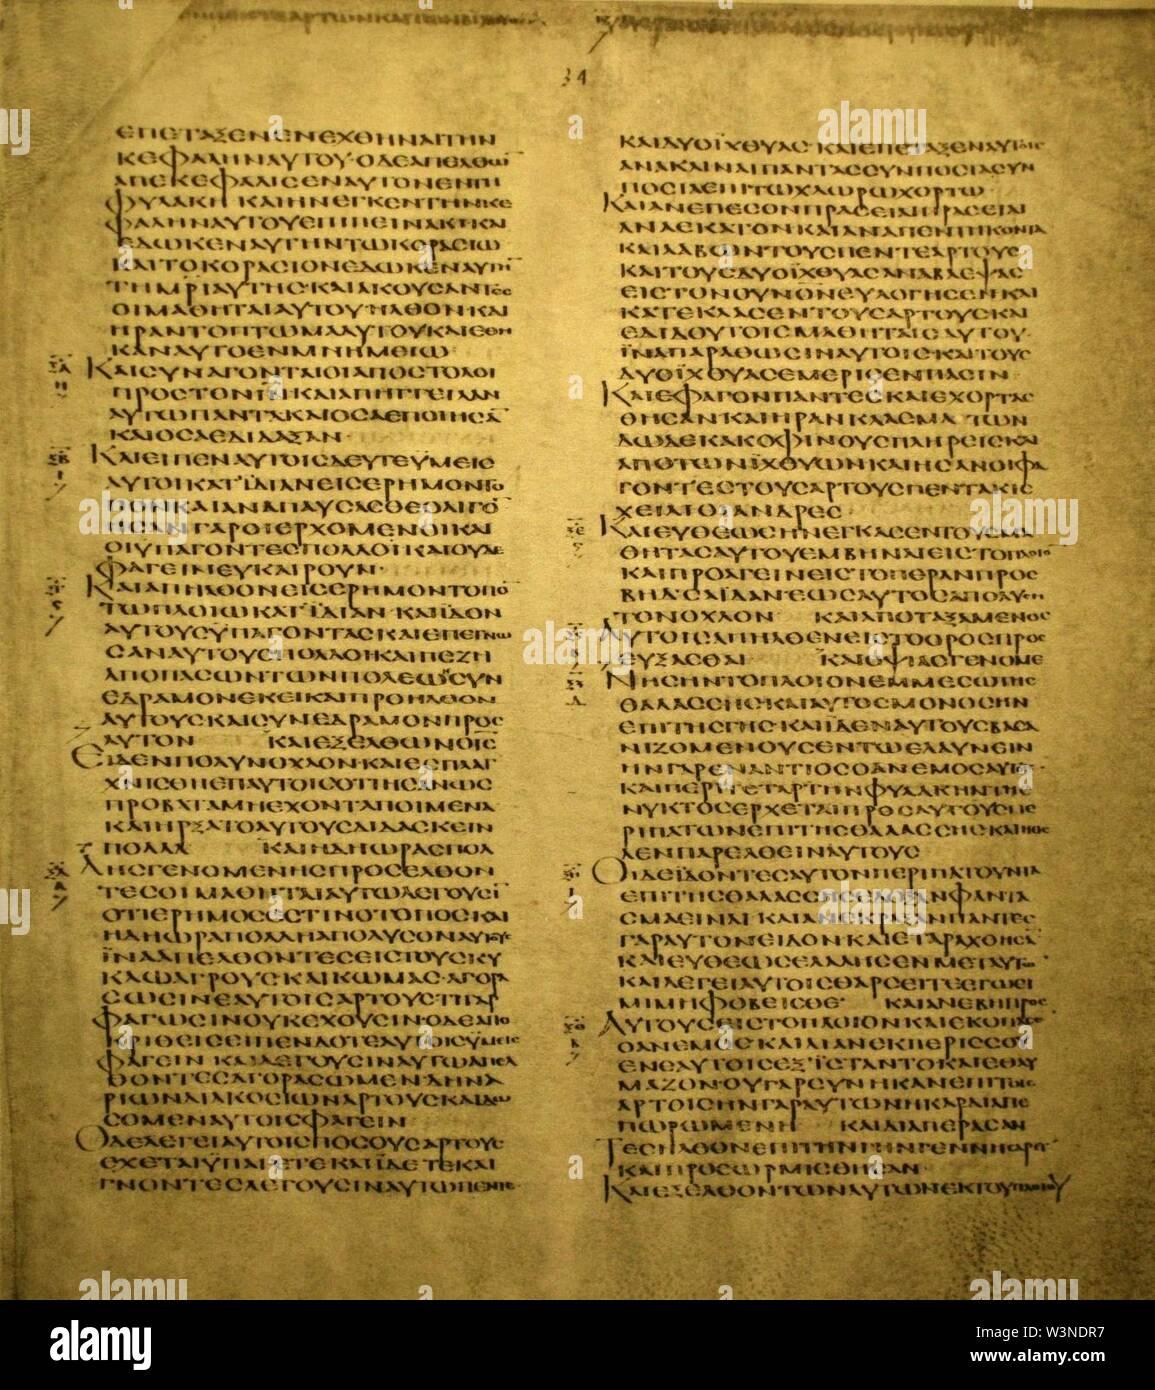 34
ΕΠΕΤΑΞΕΝΕΝΕΧΘΗΝΑΙΤΗΝ
ΚΕΦΑΛΗΝΑΥΤΟΥ·ΟΔΕΑΠΕΛΘΩ
ΑΠΕΚΕΦΑΛΙΣΕΝΑΥΤΟΝΕΝΤΗ
ΦΥΛΑΚΗ ΚΑΙΗΝΕΓΚΕΝΤΗΝΚΕ
ΦΑΛΗΝΑΥΤΟΥΕΠΙΠΙΝΑΚΙΚΑΙ
ΕΔΩΚΕΝΑΥΤΗΝΤΩΚΟΡΑΣΙΩ
ΚΑΙΤΟΚΟΡΑΣΙΟΝΕΔΩΚΕΝΑΥΤΗ
ΤΗΜΡΙΑΥΤΗΣ·ΚΑΙΑΚΟΥΣΑΝΤΕΣ
ΟΙΜΑΘΗΤΑΙΑΥΤΟΥ·ΗΛΘΟΝΚΑΙ
ΗΡΑΝΤΟΠΤΩΜΑΑΥΤΟΥΚΑΙΕΘΗ
ΚΑΝΑΥΤΟΕΝΜΝΗΜΕΙΩ·
ΚΑΙΣΥΝΑΓΟΝΤΑΙΟΙΑΠΟΣΤΟΛΟΙ
ΠΡΟΣΤΟΝΙΝΚΑΙΑΠΗΓΓΕΙΛΑΝ
ΑΥΤΩΠΑΝΤΑΚΑΙΟΣΑΕΠΟΙΗΣΑ
ΚΑΙΟΣΑΕΔΙΔΑΞΑΝ·
ΚΑΙΕΙΠΕΝΑΥΤΟΙΣΔΕΥΤΕΫΜΕΙΣ
ΑΥΤΟΙΚΑΤΪΔΙΑΝΕΙΣΕΡΗΜΟΝΤΟ
ΠΟΝΚΑΙΑΝΑΠΑΥΣΑΣΘΕΟΛΙΓΟ
ΗΣΑΝΓΑΡΟΙΕΡΧΟΜΕΝΟΙΚΑΙ
ΟΙΫΠΑΓΟΝΤΕΣΠΟΛΛΟΙΚΑΙΟΥΔΕ
ΦΑΓΕΙΝΕΥΚΑΙΡΟΥΝ·
ΚΑΙΑΠΗΛΘΟΝΕΙΣΕΡΗΜΟΝΤΟΠΟ
ΤΩΠΛΟΙΩΚΑΤΪΔΙΑΝ·ΚΑΙΪΔΟΝ
ΑΥΤΟΥΣΫΠΑΓΟΝΤΑΣΚΑΙΕΠΕΓΝΩ
ΣΑΝΑΥΤΟΥΣΠΟΛΛΟΙΚΑΙΠΕΖΗ
ΑΠΟΠΑΣΩΝΤΩΝΠΟΛΕΩΣΥΝ
ΕΔΡΑΜΟΝΕΚΕΙΚΑΙΠΡΟΗΛΘΟΝ
ΑΥΤΟΥΣΚΑΙΣΥΝΕΔΡΑΜΟΝΠΡΟΣ
ΑΥΤΟΝ ΚΑΙΕΞΕΛΘΩΝΟΙΣ
ΕΙΔΕΝΠΟΛΥΝΟΧΛΟΝ·ΚΑΙΕΣΠΛΑΓ
ΧΝΙΣΘΗΕΠΑΥΤΟΙΣΟΤΙΗΣΑΝΩΣ
ΠΡΟΒΑΤΑΜΗΕΧΟΝΤΑΠΟΙΜΕΝΑ
ΚΑΙΗΡΞΑΤΟΑΥΤΟΥΣΔΙΔΑΣΚΕΙΝ
ΠΟΛΛΑ ΚΑΙΗΔΗΩΡΑΣΠΟΛ
ΛΗΣΓΕΝΟΜΕΝΗΣΠΡΟΣΕΛΘΟΝ
ΤΕΣΟΙΜΑΘΗΤΑΙΑΥΤΩΛΕΓΟΥΣΙ
ΟΤΙΕΡΗΜΟΣΕΣΤΙΝΟΤΟΠΟΣΚΑΙ
ΗΔΗΩΡΑΠΟΛΛΗΑΠΟΛΥΣΟΝΑΥΤΟΥΣ
ΪΝΑΑΠΕΛΘΟΝΤΕΣΕΙΣΤΟΥΣΚΥ
ΚΛΩΑΓΡΟΥΣΚΑΙΚΩΜΑΣ·ΑΓΟΡΑ
ΣΩΣΙΝΕΑΥΤΟΙΣΑΡΤΟΥΣΤΙΓΑΡ
ΦΑΓΩΣΙΝΟΥΚΕΧΟΥΣΙΝ·ΟΔΕΑΠΟ
ΚΡΙΘΕΙΣΕΙΠΕΝΔΟΤΕΑΥΤΟΙΣΫΜΕΙΣ
ΦΑΓΕΙΝ ΚΑΙΛΕΓΟΥΣΙΝΑΥΤΩΑΠΕΛ
ΘΟΝΤΕΣΑΓΟΡΑΣΩΜΕΝΔΗΝΑ
ΡΙΩΝΔΙΑΚΟΣΙΩΝΑΡΤΟΥΣΚΑΙΔΩ
ΣΟΜΕΝΑΥΤΟΙΣΦΑΓΕΙΝ
ΟΔΕΛΕΓΕΙΑΥΤΟΙΣΠΟΣΟΥΣΑΡΤΟΥΣ
ΕΧΕΤΑΙΫΠΑΓΕΤΕΚΑΙΪΔΕΤΕΚΑΙ
ΓΝΟΝΤΕΣΛΕΓΟΥΣΙΝΑΥΤΩΠΕΝΤΕ
ΚΑΙΔΥΟΪΧΘΥΑΣ·ΚΑΙΕΠΕΤΑΞΕΝΑΥΤΟΙΣ
ΑΝΑΚΛΙΝΑΙΠΑΝΤΑΣΣΥΝΠΟΣΙΑΣΥΝ
ΠΟΣΙΑΕΠΙΤΩΧΛΩΡΩΧΟΡΤΩ·
ΚΑΙΑΝΕΠΕΣΟΝΠΡΑΣΕΙΑΙΠΡΑΣΕΙΑΙ
ΑΝΑΕΚΑΤΟΝΚΑΙΑΝΑΠΕΝΤΗΚΟΝΤΑ
ΚΑΙΛΑΒΩΝΤΟΥΣΠΕΝΤΕΑΡΤΟΥΣ
ΚΑΙΤΟΥΣΔΥΟΪΧΘΥΑΣΑΝΑΒΛΕΨΑΣ
ΕΙΣΤΟΝΟΥΝΟΝΕΥΛΟΓΗΣΕΝΚΑΙ
ΚΑΤΕΚΛΑΣΕΝΤΟΥΣΑΡΤΟΥΣΚΑΙ
ΕΔΙΔΟΥΤΟΙΣΜΑΘΗΤΑΙΣΑΥΤΟΥ·
ΪΝΑΠΑΡΑΘΩΣΙΝΑΥΤΟΙΣ·ΚΑΙΤΟΥΣ
ΔΥΟΪΧΘΥΑΣΕΜΕΡΙΣΕΝΠΑΣΙΝ
ΚΑΙΕΦΑΓΟΝΠΑΝΤΕΣΚΑΙΕΧΟΡΤΑΣ
ΘΗΣΑΝ ΚΑΙΗΡΑΝΚΛΑΣΜΑ ΤΩΝ
ΔΩΔΕΚΑΚΟΦΙΝΟΥΣΠΛΗΡΕΙΣΚΑΙ
ΑΠΟΤΩΝΪΧΘΥΩΝΚΑΙΗΣΑΝΟΙΦΑ
ΓΟΝΤΕΣΤΟΥΣΑΡΤΟΥΣΠΕΝΤΑΚΙΣ
ΧΕΙΛΙΟΙΑΝΔΡΕΣ·
ΚΑΙΕΥΘΕΩΣΗΝΕΓΚΑΣΕΝΤΟΥΣΜΑ
ΘΗΤΑΣΑΥΤΟΥΕΜΒΗΝΑΙΕΙΣΤΟΠΛΟΙΟ
ΚΑΙΠΡΟΑΓΕΙΝΕΙΣΤΟΠΕΡΑΝΠΡΟΣ
ΒΗΔΣΑΪΔΑΝΕΩΣΑΥΤΟΣΑΠΟΛΥΣΗ
ΤΟΝΟΧΛΟΝ ΚΑΙΑΠΟΤΑΞΑΜΕΝΟΣ
ΑΥΤΟΙΣΑΠΗΛΘΕΝΕΙΣΤΟΟΡΟΣΠΡΟΣ
ΕΥΞΑΣΘΑΙ ΚΑΙΟΨΙΑΣΓΕΝΟΜΕ
ΝΗΣΗΝΤΟΠΛΟΙΟΝΕΜΜΕΣΩΤΗΣ
ΘΑΛΑΣΣΗΣ·ΚΑΙΑΥΤΟΣΜΟΝΟΣΗΝ
ΕΠΙΤΗΣΓΗΣ·ΚΑΙΪΔΕΝΑΥΤΟΥΣΒΑΣΑ
ΝΙΖΟΜΕΝΟΥΣΕΝΤΩΕΛΑΥΝΕΙΝ
ΗΝΓΑΡΕΝΑΝΤΙΟΣΟΑΝΕΜΟΣΑΥΤΟΙΣ·
ΚΑΙΠΕΡΙΤΕΤΑΡΤΗΝΦΥΛΑΚΗΝΤΗΣ
ΝΥΚΤΟΣΕΡΧΕΤΑΙΠΡΟΣΑΥΤΟΥΣΠΕ
ΡΙΠΑΤΩΝΕΠΙΤΗΣΘΑΛΑΣΣΗΣΚΑΙΗΘΕ
ΛΕΝΠΑΡΕΛΘΕΙΝΑΥΤΟΥΣ
ΟΙΔΕΪΔΟΝΤΕΣΑΥΤΟΝΠΕΡΙΠΑΤΟΥΝΤΑ
ΕΠΙΤΗΣΘΑΛΑΣΣΕΔΟΞΑΝΦΑΝΤΑ
ΣΜΑΕΙΝΑΙ ΚΑΙΑΝΕΚΡΑΞΑΝΠΑΝΤΕΣ
ΓΑΡΑΥΤΟΝΕΙΔΟΝΚΑΙΕΤΑΡΑΧΘΗΣΑ
ΚΑΙΕΥΘΕΩΣΕΛΑΛΗΣΕΝΜΕΤΑΥΤΩ
ΚΑΙΛΕΓΕΙΑΥΤΟΙΣΘΑΡΣΕΙΤΕΕΓΩΕΙ
ΜΙΜΗΦΟΒΕΙΣΘΕ· ΚΑΙΑΝΕΒΗΠΡΟΣ
ΑΥΤΟΥΣΕΙΣΤΟΠΛΟΙΟΝΚΑΙΕΚΟΠΑΣΕ
ΟΑΝΕΜΟΣΚΑΙΛΙΑΝΕΚΠΕΡΙΣΣΟΥ
ΕΝΕΑΥΤΟΙΣΕΞΪΣΤΑΝΤΟΚΑΙΕΘΑΥ
ΜΑΖΟΝ·ΟΥΓΑΡΣΥΝΗΚΑΝΕΠΙΤΟΙΣ
ΑΡΤΟΙΣΗΝΓΑΡΑΥΤΩΝΗΚΑΡΔΙΑΠΕ
ΠΩΡΩΜΕΝΗ ΚΑΙΔΙΑΠΕΡΑΣΑΝ
ΤΕΣΗΛΘΟΝΕΠΙΤΗΝΓΗΝΓΕΝΝΗΣΑΡΕΤ
ΚΑΙΠΡΟΣΩΡΜΙΣΘΗΣΑΝ·
ΚΑΙΕΞΕΛΘΟΝΤΩΝΑΥΤΩΝΕΚΤΟΥΠΛΟΙΟΥ
alamy
Image ID: W3NDR7
www.alamy.com